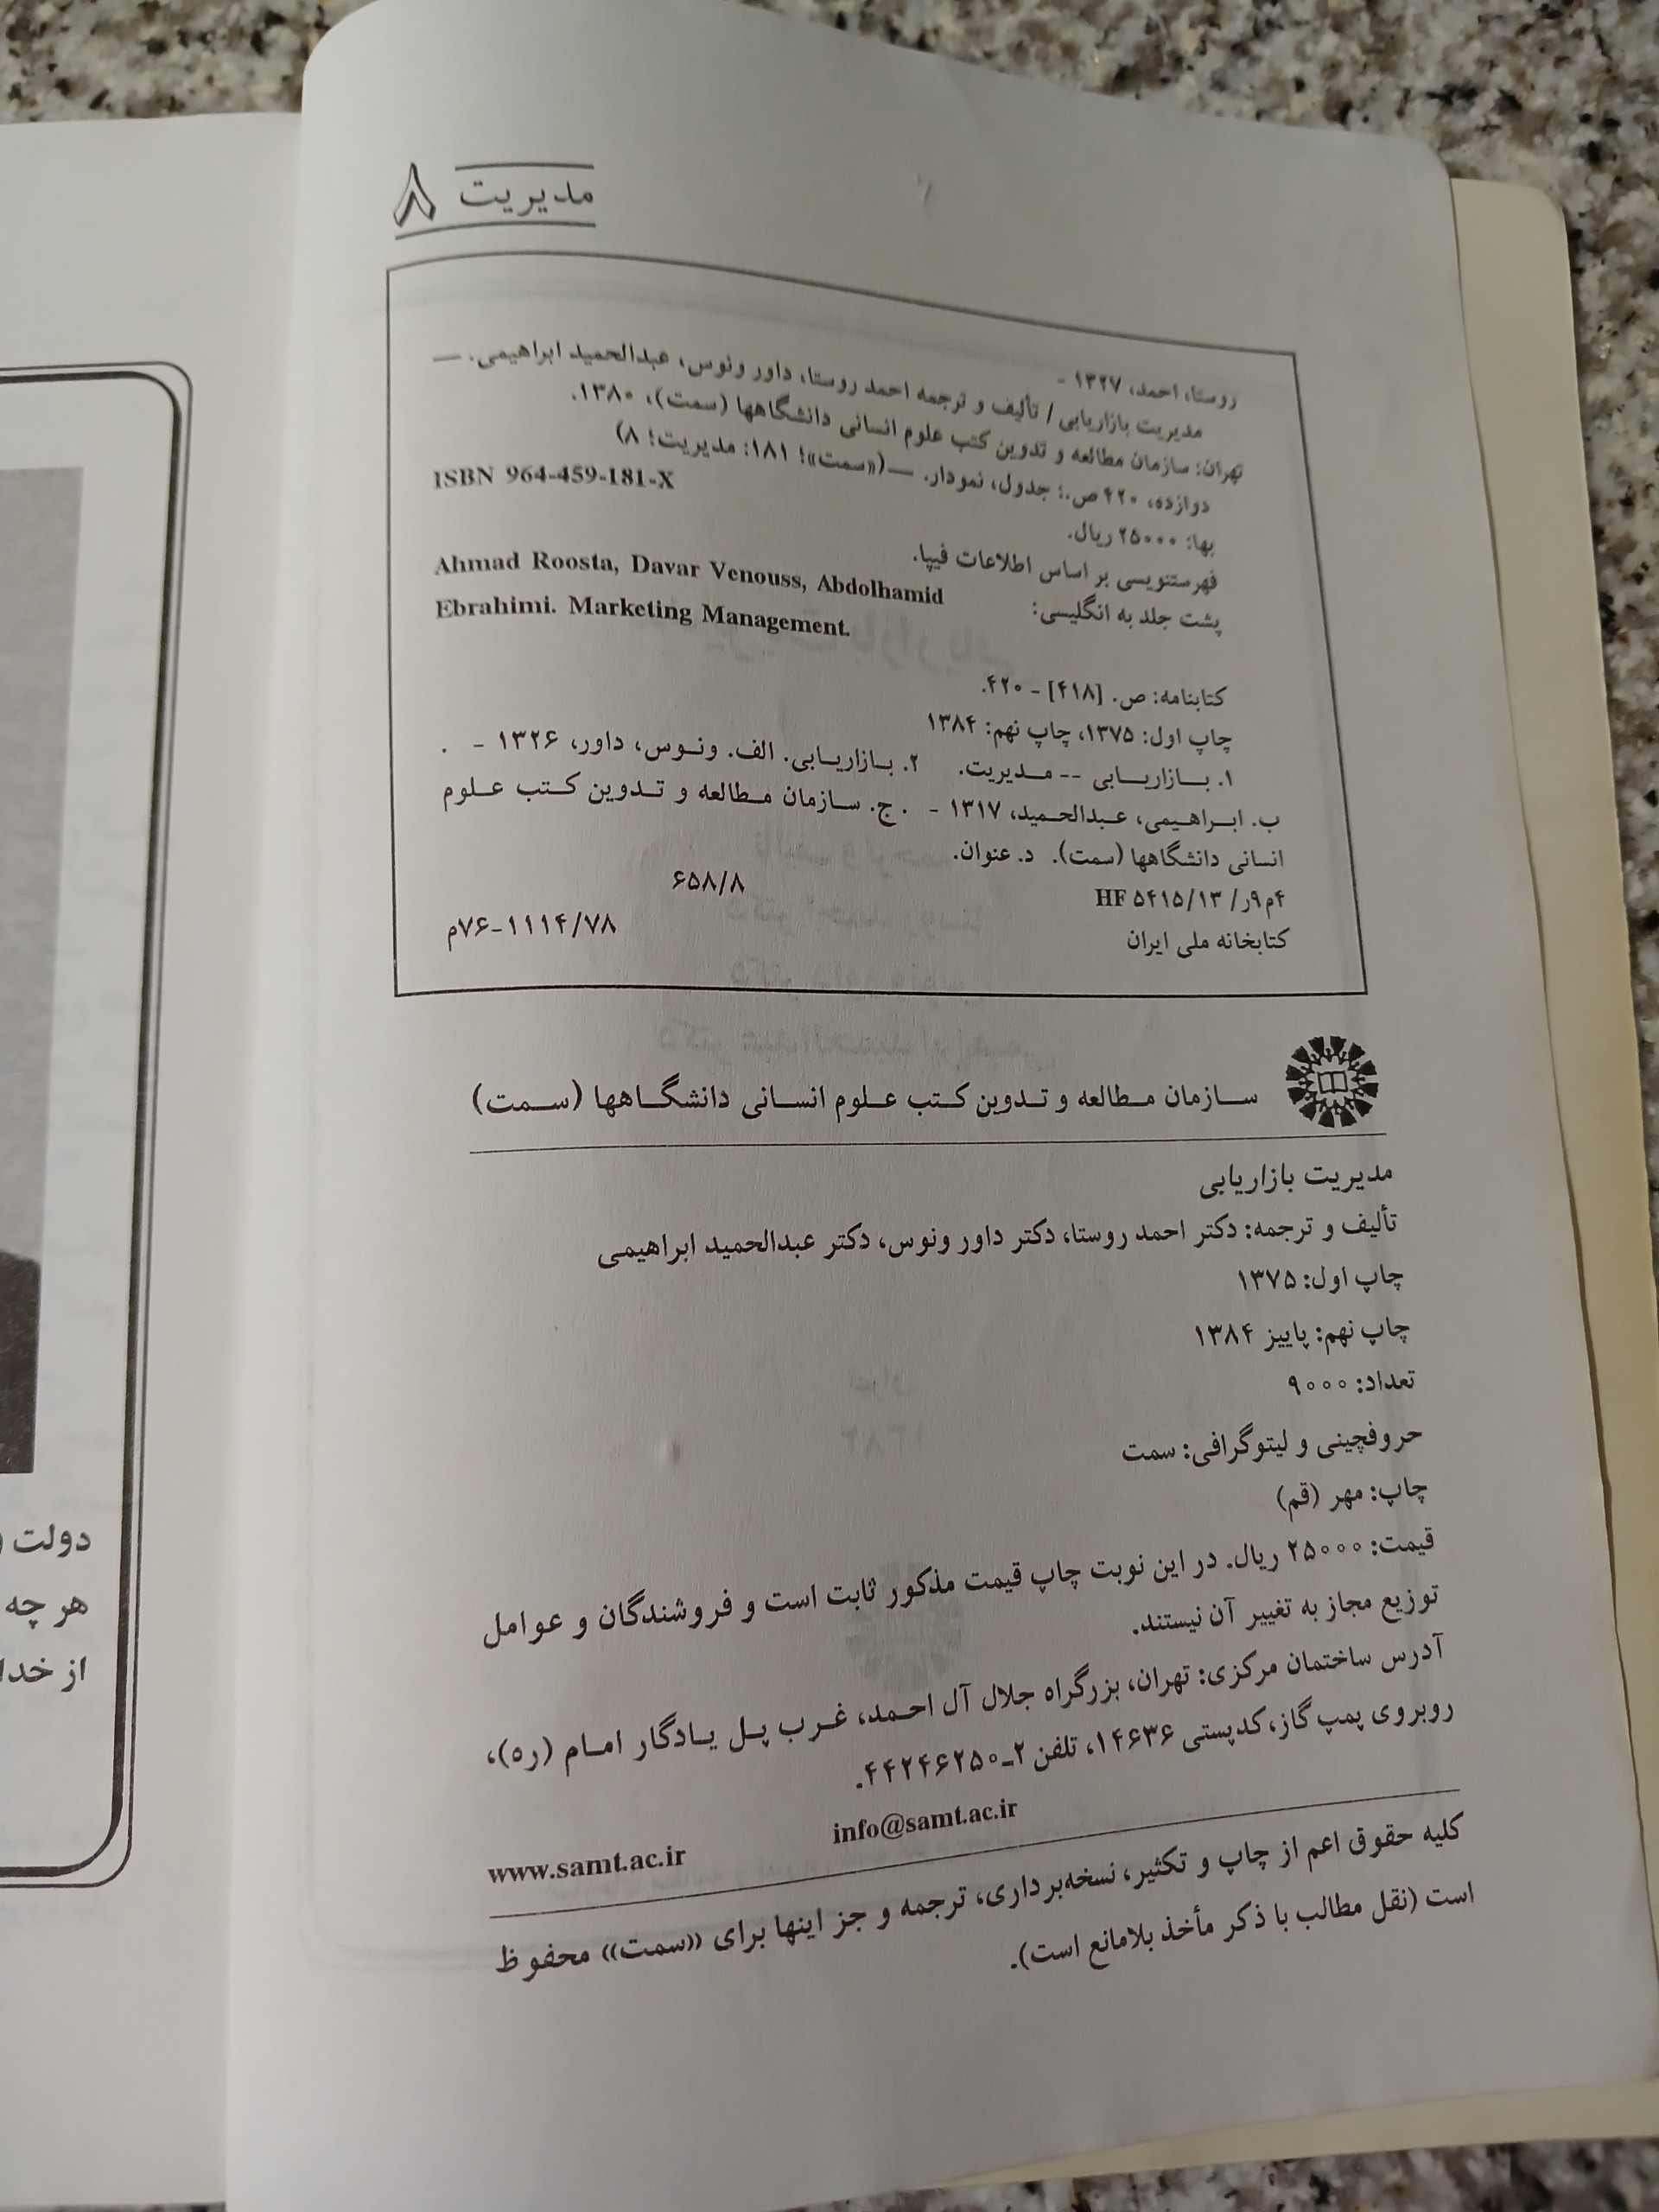 مدیریت ۸
روستا، احمد، ۱۳۲۷ -
مدیریت بازاریابی / تألیف و ترجمه احمد روستا، داور ونوس، عبدالحمید ابراهیمی. —
تهران: سازمان مطالعه و تدوین کتب علوم انسانی دانشگاهها (سمت)، ۱۳۸۰.
دوازده، ۴۲۰ ص.: جدول، نمودار. — («سمت»؛ ۱۸۱: مدیریت؛ ۸)
ISBN 964-459-181-X
بها: ۲۵۰۰۰ ریال.
فهرستنویسی بر اساس اطلاعات فیپا.
پشت جلد به انگلیسی:
Ahmad Roosta, Davar Venouss, Abdolhamid
Ebrahimi. Marketing Management.
کتابنامه: ص. [۴۱۸] - ۴۲۰.
چاپ اول: ۱۳۷۵، چاپ نهم: ۱۳۸۴
۱. بازاریابی -- مدیریت. ۲. بازاریابی. الف. ونوس، داور، ۱۳۲۶ - .
ب. ابراهیمی، عبدالحمید، ۱۳۱۷ - . ج. سازمان مطالعه و تدوین کتب علوم
انسانی دانشگاهها (سمت). د. عنوان.
۶۵۸/۸
۴م۹ر/ HF ۵۴۱۵/۱۳
کتابخانه ملی ایران
۷۶-۱۱۱۴/۷۸م
سازمان مطالعه و تدوین کتب علوم انسانی دانشگاهها (سمت)
مدیریت بازاریابی
تألیف و ترجمه: دکتر احمد روستا، دکتر داور ونوس، دکتر عبدالحمید ابراهیمی
چاپ اول: ۱۳۷۵
چاپ نهم: پاییز ۱۳۸۴
تعداد: ۹۰۰۰
حروفچینی و لیتوگرافی: سمت
چاپ: مهر (قم)
قیمت: ۲۵۰۰۰ ریال. در این نوبت چاپ قیمت مذکور ثابت است و فروشندگان و عوامل
توزیع مجاز به تغییر آن نیستند.
آدرس ساختمان مرکزی: تهران، بزرگراه جلال آل احمد، غرب پل یادگار امام (ره)،
روبروی پمپ گاز، کدپستی ۱۴۶۳۶، تلفن ۲-۴۴۲۴۶۲۵۰.
www.samt.ac.ir info@samt.ac.ir
کلیه حقوق اعم از چاپ و تکثیر، نسخه‌برداری، ترجمه و جز اینها برای «سمت» محفوظ
است (نقل مطالب با ذکر مأخذ بلامانع است).
دولت
هر چه
از خدا